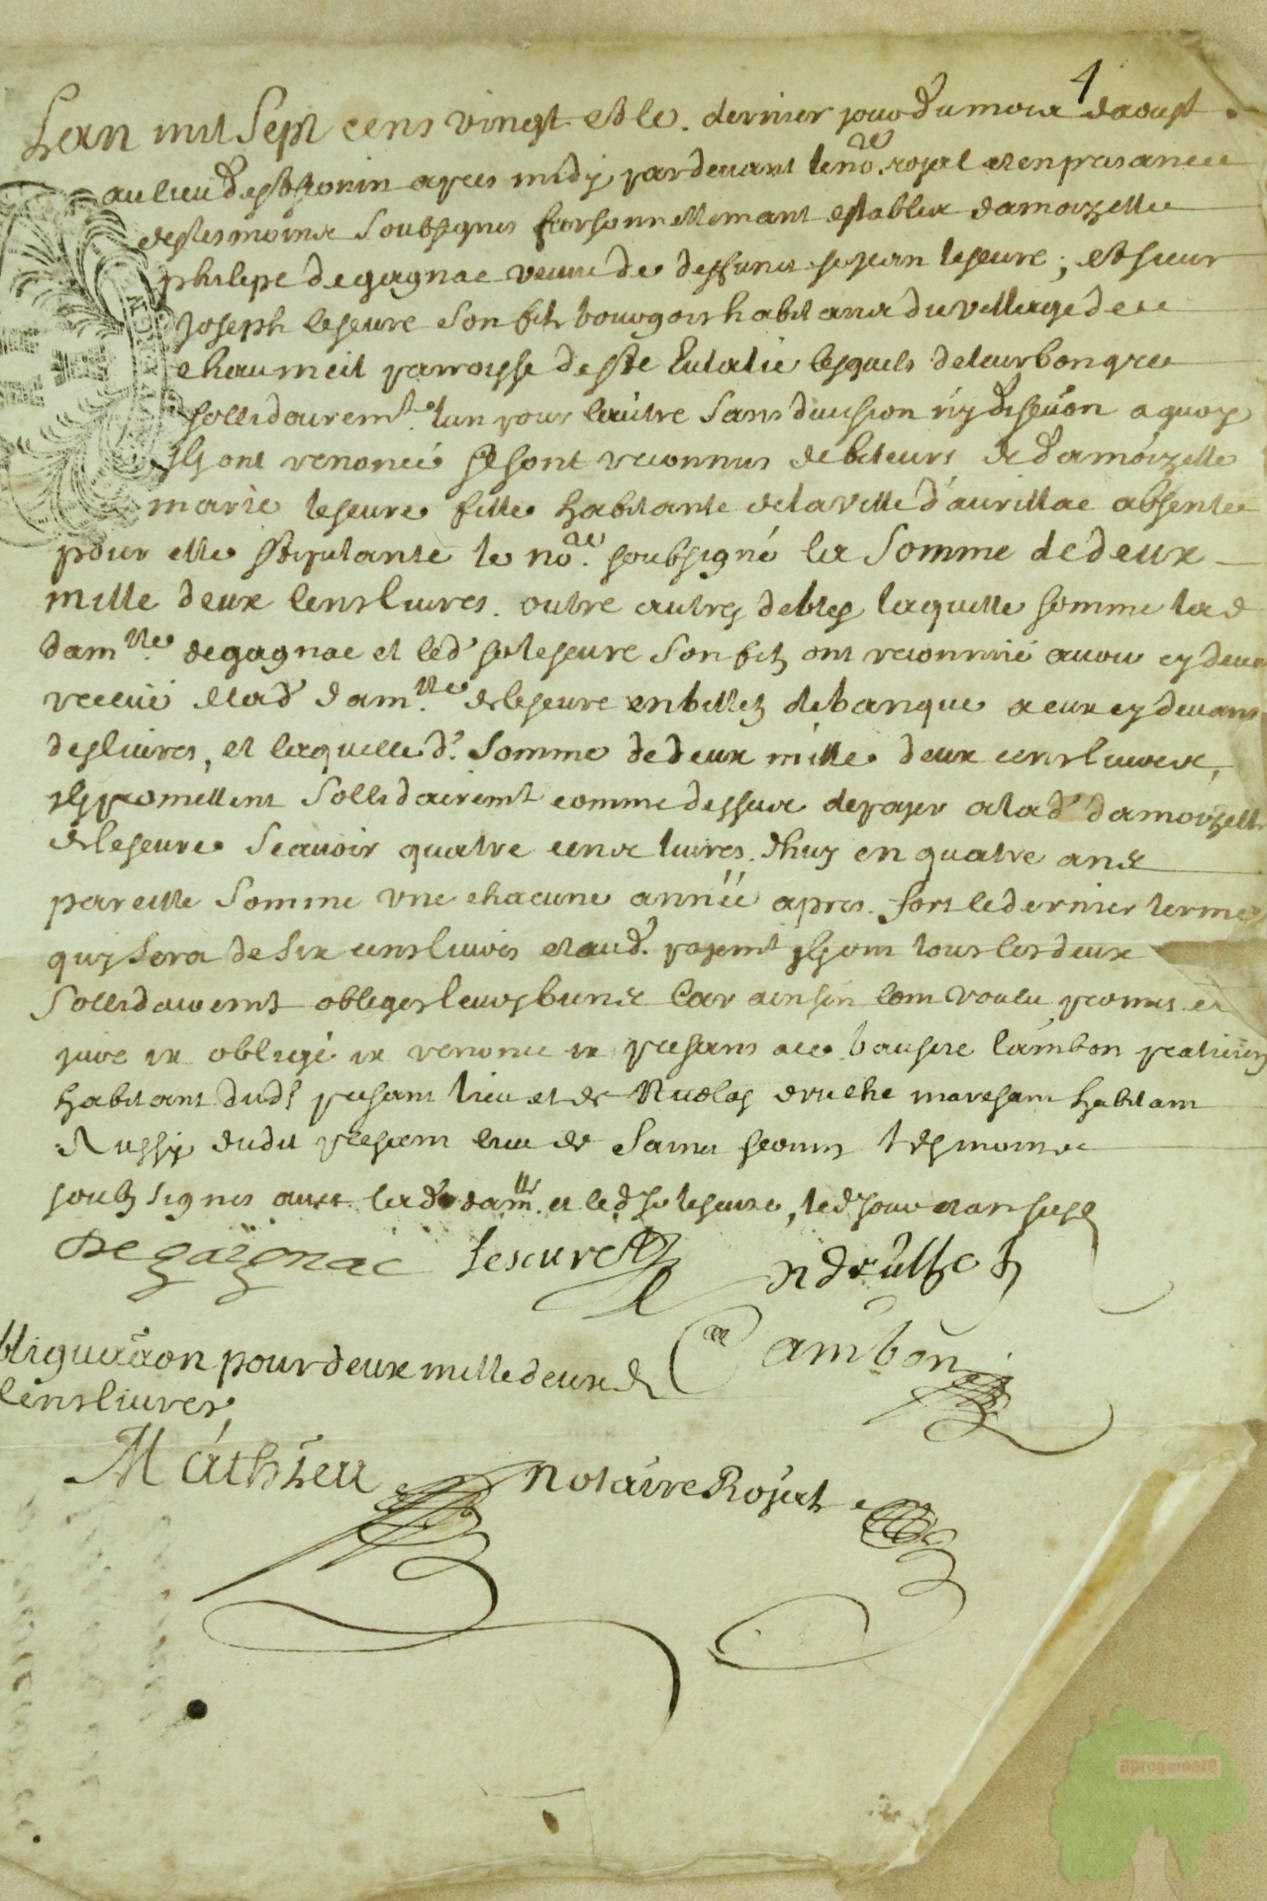 4
Lan mil Sept cens vingt et le dernier jour du mois daoust
au lieu de st geronin apres midy pardevant le nore royal et en presance
des tesmoins soubsignes personnellemant establix damoizelle
philepe degagnac veuve de deffunct sr jean leseure ; et sieur
Joseph leseure son fils bourgois habitans du village de
chaumeil parroisse de ste Eulalie lesquels de leur bon gre
sollidairemt lun pour lautre sans division ny discution a quoy
ils ont renoncé se sont reconnus debiteurs de damoizelle
marie leseure fille habitante de la ville d'aurillac absente
pour elle stipulante le nore soubsigné la somme de deux
mille deux cens livres outre autres debtes laquelle somme lad
damlle degagnac et led sr leseure son fils ont reconnu avoir cy devan
receue de lad damlle de leseure en billetz de banque a eux cy devant
deslivres, et laquelle d. somme de deux mille deux cens livres,
ils promettent sollidairemt comme dessus de payer a lad damoizelle
de leseure scavoir quatre cens livres dhuy en quatre ans
pareille somme une chacune année apres fors le dernier terme
quy sera de six cens livres et aud. payemt ils ont tous les deux
sollidairemt obliges leurs biens car ainsin lont voulu promis et
jure ix obligé ix renonce ix presans me bausire Cambon praticien
habitant dudt presant lieu et de Nicolas druche marchant habitant
aussy dudit present lieu de Saint geronin tesmoins
soubsignes avec lad damlle et led sr leseure, led jour et an susd
Degaignac Lescure N drulhe
Cambon
bligation pour deux mille deux
Cens livres
Mathieu notaire Royal
aprogemere